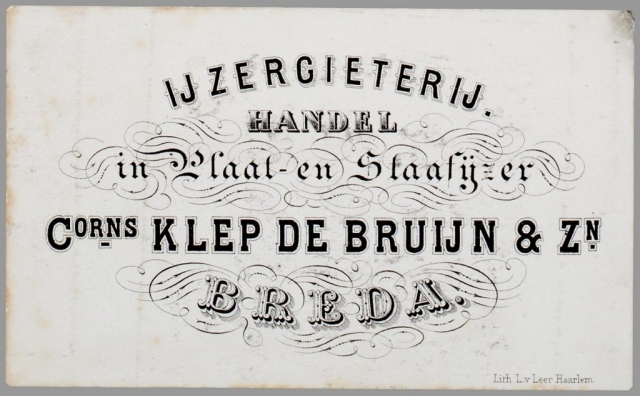 IJZERGIETERIJ.
HANDEL
in Plaat- en Staafijzer
CORNS KLEP DE BRUIJN & ZN
BREDA.
Lith. L. v Leer Haarlem.